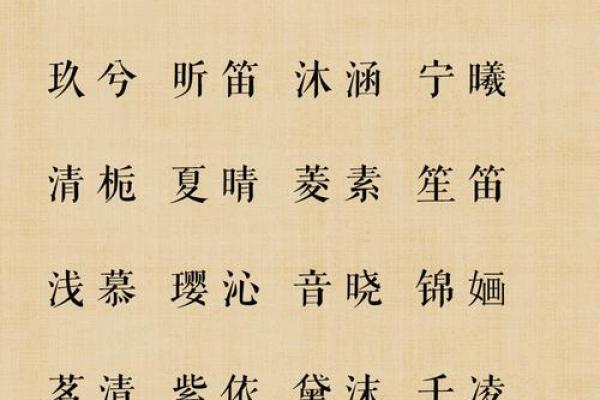 玖兮 昕笛 沐涵 宁曦
清栀 夏晴 菱素 笙笛
浅慕 璎沁 音晓 锦婳
茗清 紫依 黛沫 千凌